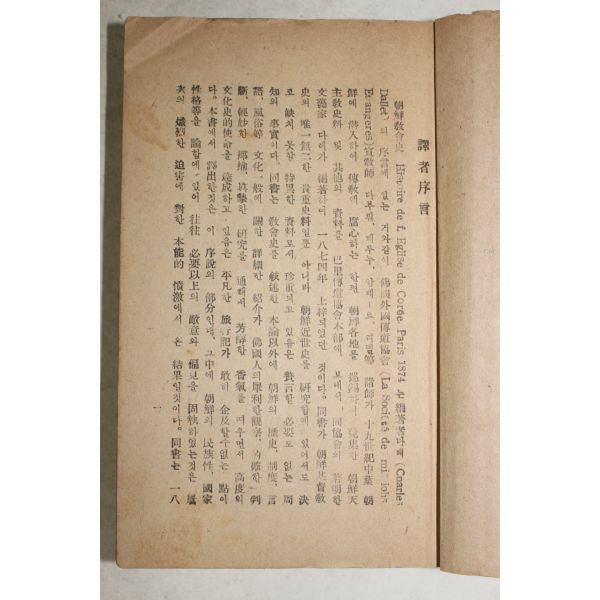 譯者序言
朝鮮敎會史 Histoire de l' Eglise de Corée. Paris 1874 편著者 다레 (Charles
Dallet)의 序言에 있는 거와같이 佛國外國傳道協會 (La Société de missions
Etrangères) 宣敎師 諸師가 十九世紀中葉 朝
鮮에 潛入하여 傳敎에 腐心하는 한편 朝鮮各地를 蒐集한 朝鮮天
主敎史料 及 其他의 資料를 巴里傳道協會本部에 보내서 同協會의 著明한
文藻家 다레가 編著하여 一八七四年 上梓되었던 것이다。同書가 朝鮮基督敎
史의 唯一無二한 貴重史料일뿐 아니라 朝鮮近世史를 硏究함에 있어서도 決
코 缺치 못할 特異한 資料로서 珍重되고 있음은 贅言할 必要도 없는 周
知의 事實이다。同書는 敎會史를 敍述한 本論以外에 朝鮮의 歷史、制度、言
語、風俗等 文化一般에 關한 詳細한 紹介가 佛國人의 犀利한 觀察、的確한 判
斷、輕妙한 揶揄、眞摯한 硏究를 通해서 芳醇한 香氣를 띄우면서 高度의
文化史的使命을 達成하고 있음은 平凡한 旅行記가 敢히 企及할수없는 點이
다。本書에서 譯出한것은 이 序說의 部分인데、그中에 朝鮮의 民族性、國家
性格等을 論함에 있어 往往 必要以上의 敵意와 偏見을 固執하였는것은 屢
次의 熾烈한 迫害에 對한 本能的 憤激에서 온 結果일것이다。同書는 一八
一